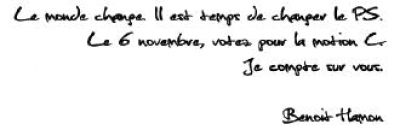 Le monde change. Il est temps de changer le PS.
Le 6 novembre, votez pour la motion C.
Je compte sur vous.
Benoit Hamon